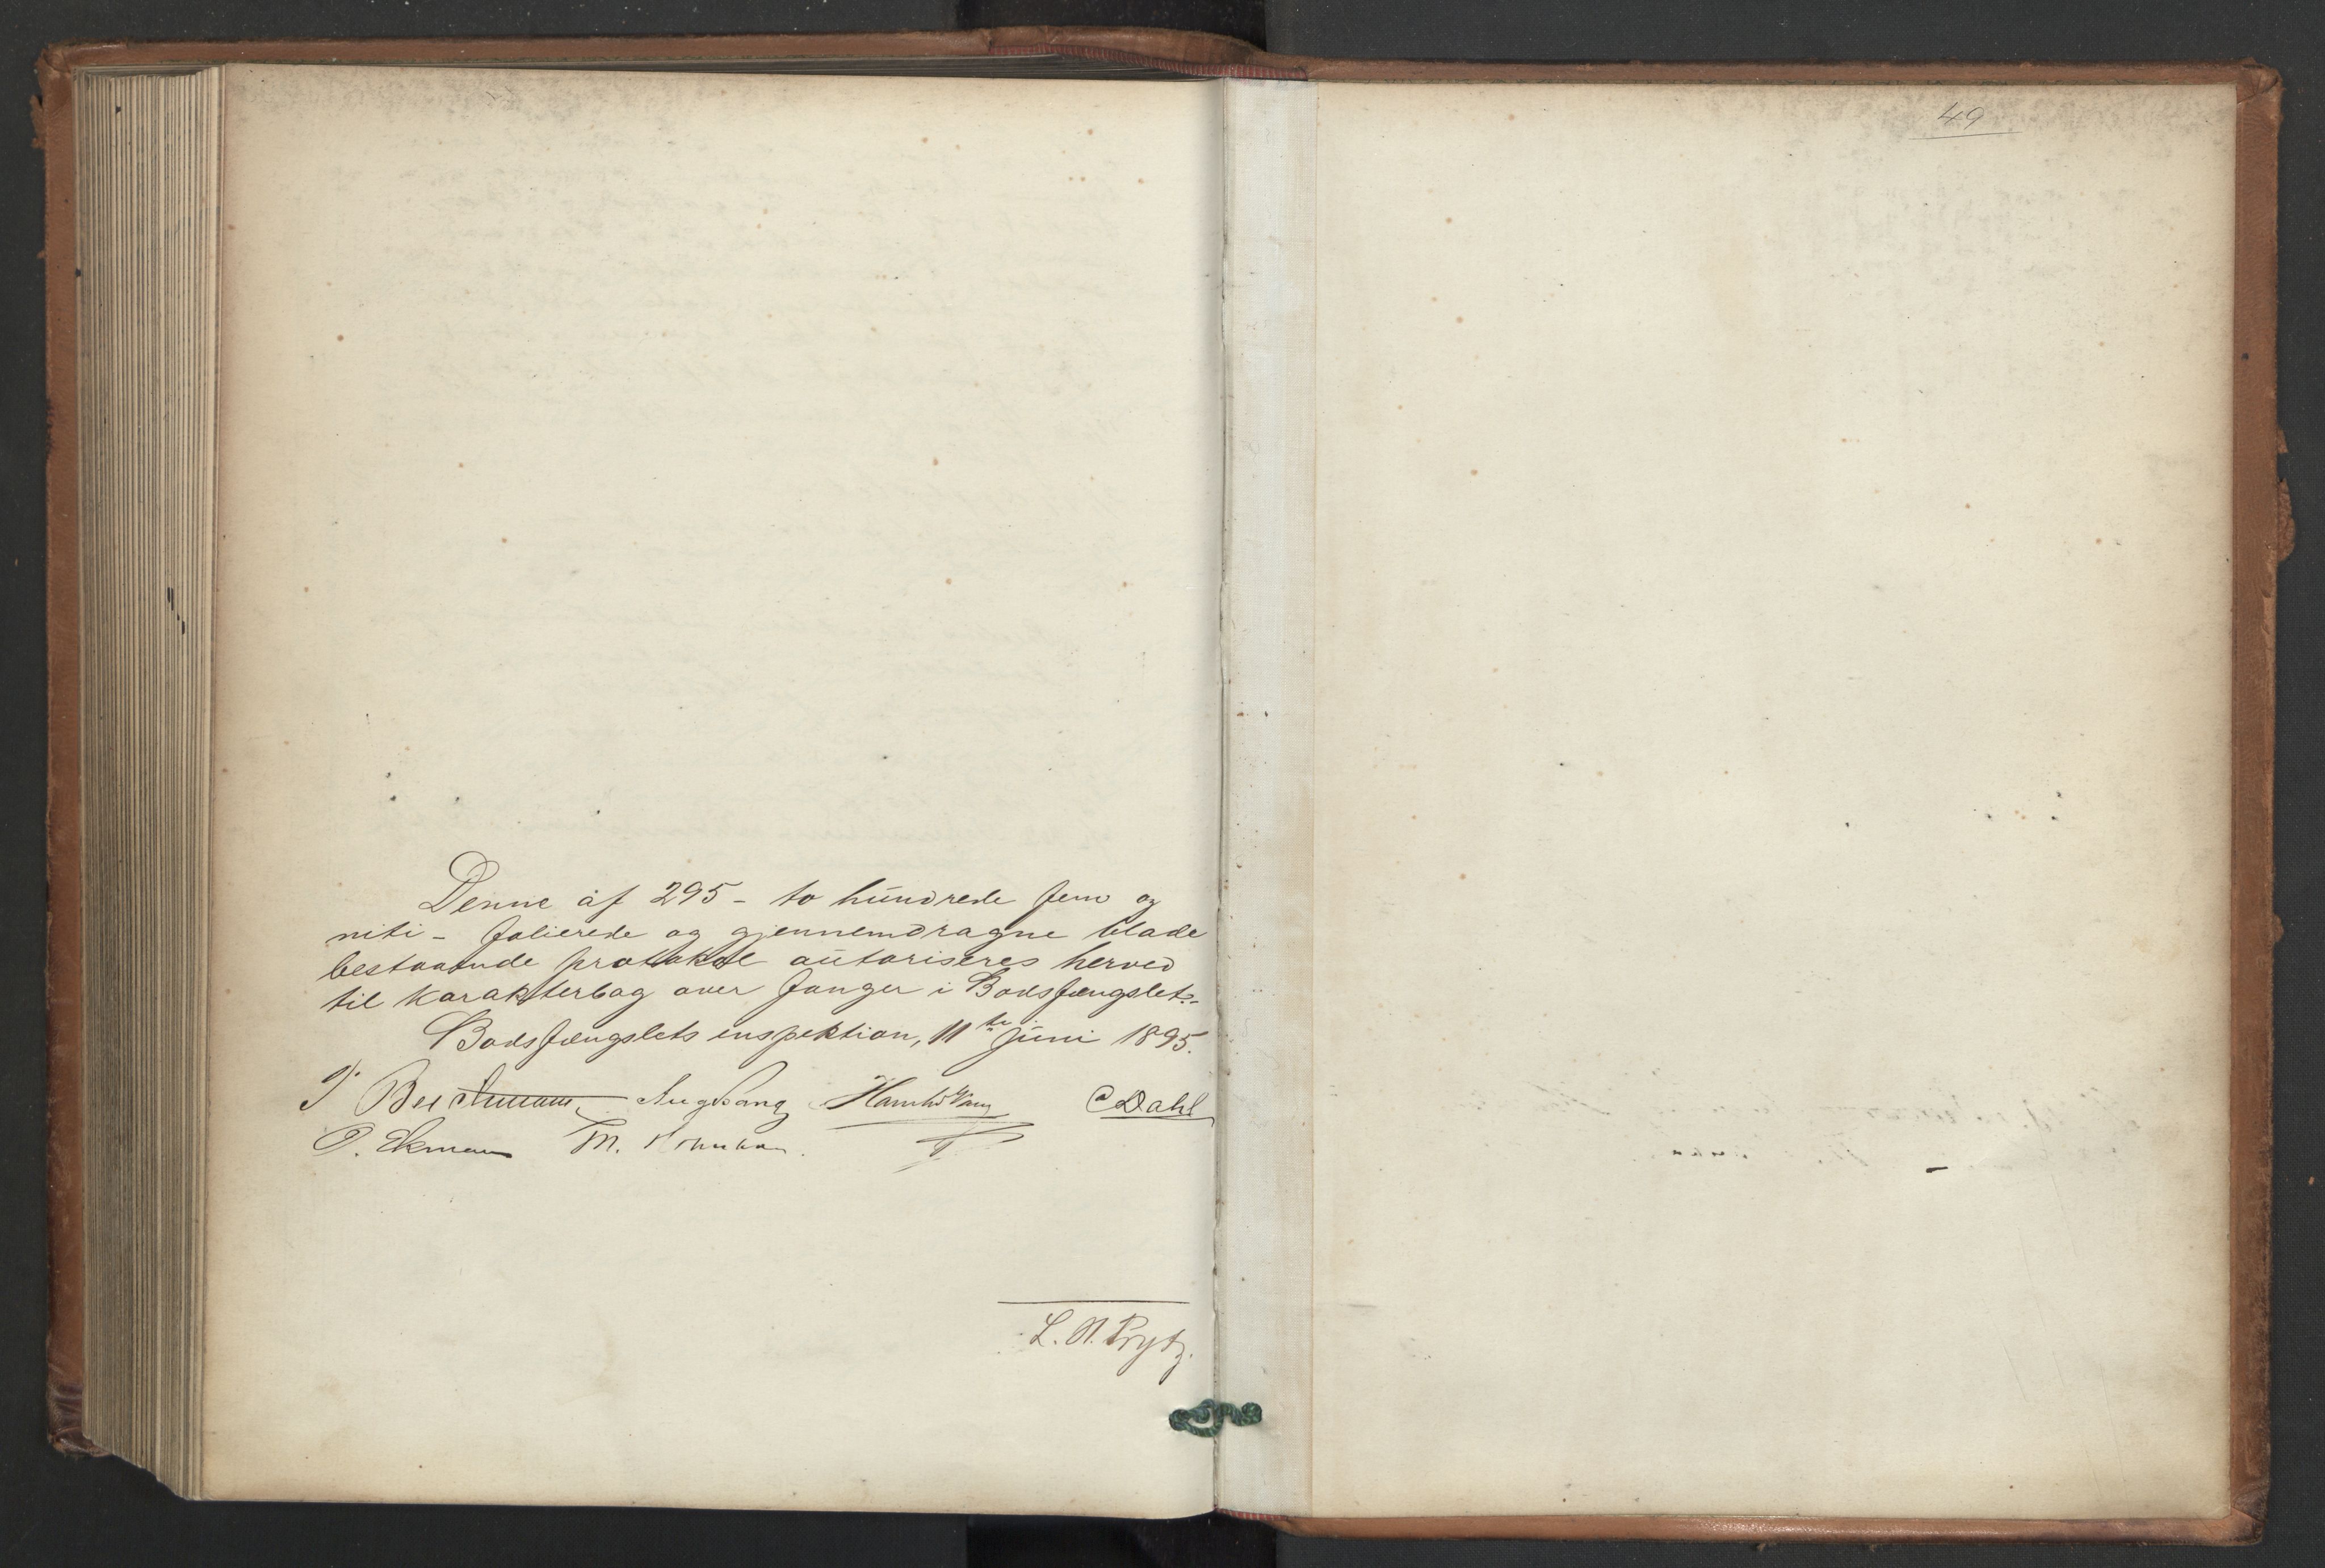 Denne af 295 – to hundrede fem og
niti – folierede og gjennemdragne blade
bestaaende protokol autoriseres herved
til karakterbog over fanger i Bodsfængslet.–
Bodsfængslets inspektion, 11te juni 1895.
Aug Lang CDahl
P. Ekman M.
L. N. Prytz.
49